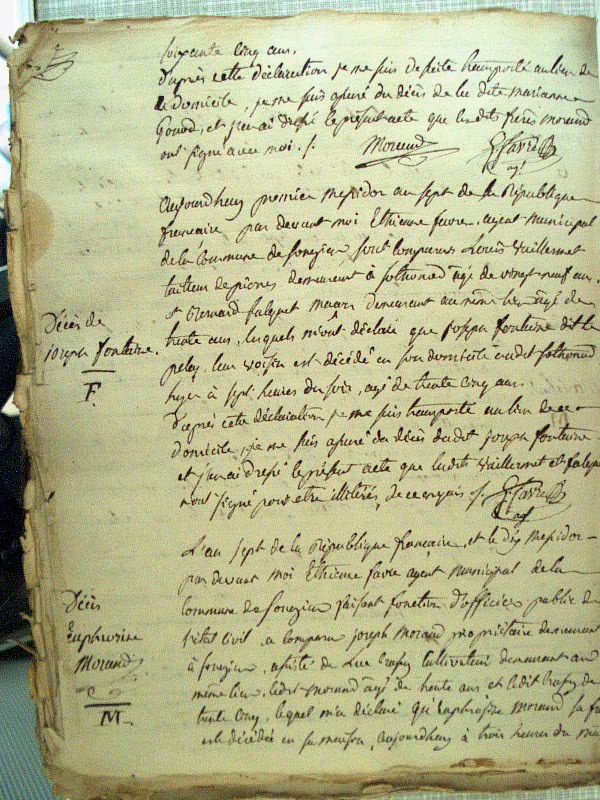 soixante cinq ans.
D'après cette déclaration je me suis de suite transporté au lieu de
le domicile, je me suis assuré du décès de la dite marianne
Goud, et j'en ai dressé le présent acte que les dits frères morand
ont signé avec moi /.
Morand
E. favre
agt
Aujourdhuy premier messidor an sept de la République
francaise, par devant moi Ethienne favre, agent municipal
de la Commune de sonzier sont comparus Louis Vuillermet
tailleur de pierres demeurant à age de vingt neuf ans,
et Bernard falquet demeurant au même lieu âgé de
trente ans, lesquels m'ont déclaré que joseph fontaine dit le
pelez, leur voisin est décédé en son domicile audit
hyer à sept heures du soir, agé de trente cinq ans.
D'après cette déclaration je me suis transporté au lieu de ce
Domicile, je me suis assuré du décès dudit joseph fontaine
et j'en ai dressé le présent acte que lesdits Vuillermet et falquet
n'ont signé pour etre illitérés, de ce enquis /. E. favre
agt
Décès de
joseph fontaine.
F.
L'an sept de la République francaise, et le dix Messidor
par devant moi Ethienne favre agent municipal de la
Commune de faisant fonction d'officier public de
l'état civil a comparu joseph Morand propriétaire demeurant
à assisté de Luc cultivateur demeurant au
même lieu, ledit morand âgé de trente ans et ledit de
trente cinq, lequel m'a déclaré qu'Euphrosine Morand sa
est décédée en sa maison, aujourdhuy à trois heures du
Décès
Euphrosine
Morand
M.